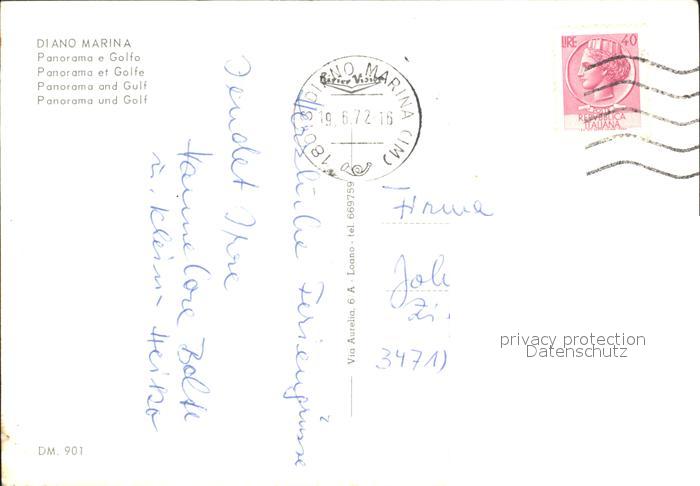 DIANO MARINA
Panorama e Golfo
Panorama et Golfe
Panorama and Gulf
Panorama und Golf
Herzliche Feriengrüsse
sendet Ihre
Hannelore Bolte
u. klein-Heiko
18013 DIANO MARINA (IM)
19.6.72-16
LIRE 40
REPVBBLICA
ITALIANA
Via Aurelia, 6 A - Loano - tel. 669759
Firma
Joh
Zi
3471)
privacy protection
Datenschutz
DM. 901